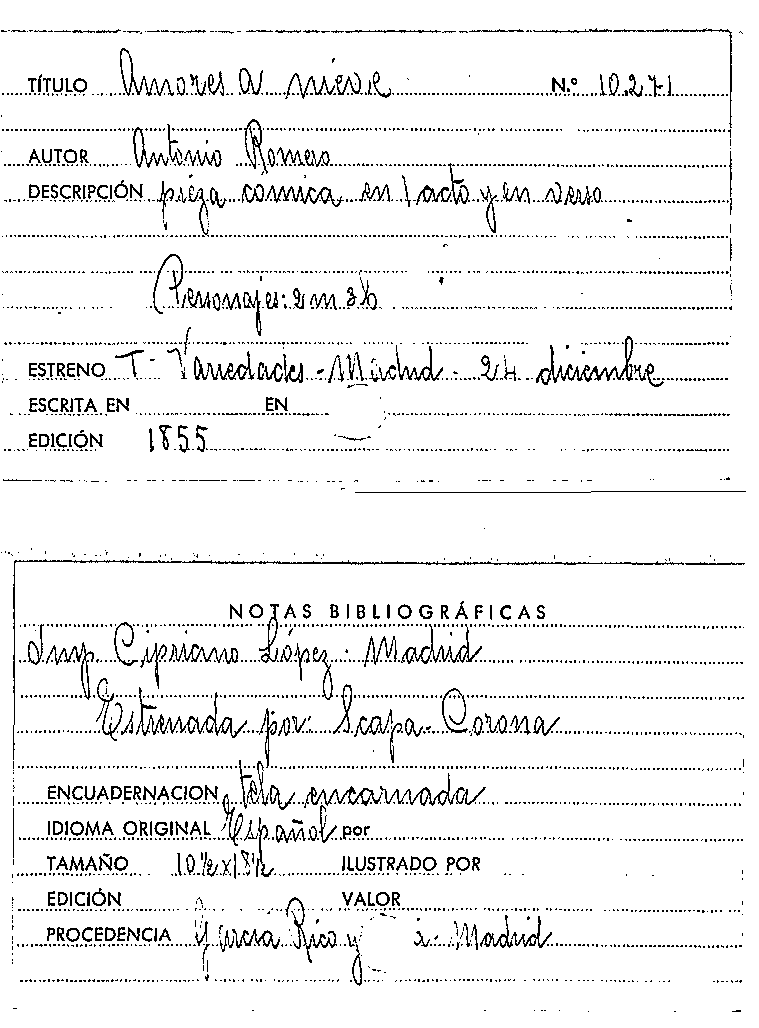 TÍTULO Amores a nieve N.º 10.271
AUTOR Antonio Romero
DESCRIPCIÓN pieza comica en 1 acto y en verso
Personajes: 2 m 3 h
ESTRENO T- Variedades - Madrid - 24 diciembre
ESCRITA EN EN
EDICIÓN 1855
NOTAS BIBLIOGRÁFICAS
Imp. Cipriano López - Madrid
Estrenada por: Scapa - Corona
ENCUADERNACION tela encarnada
IDIOMA ORIGINAL Español por
TAMAÑO 10½ x 18½ ILUSTRADO POR
EDICIÓN VALOR
PROCEDENCIA García Rico y - Madrid